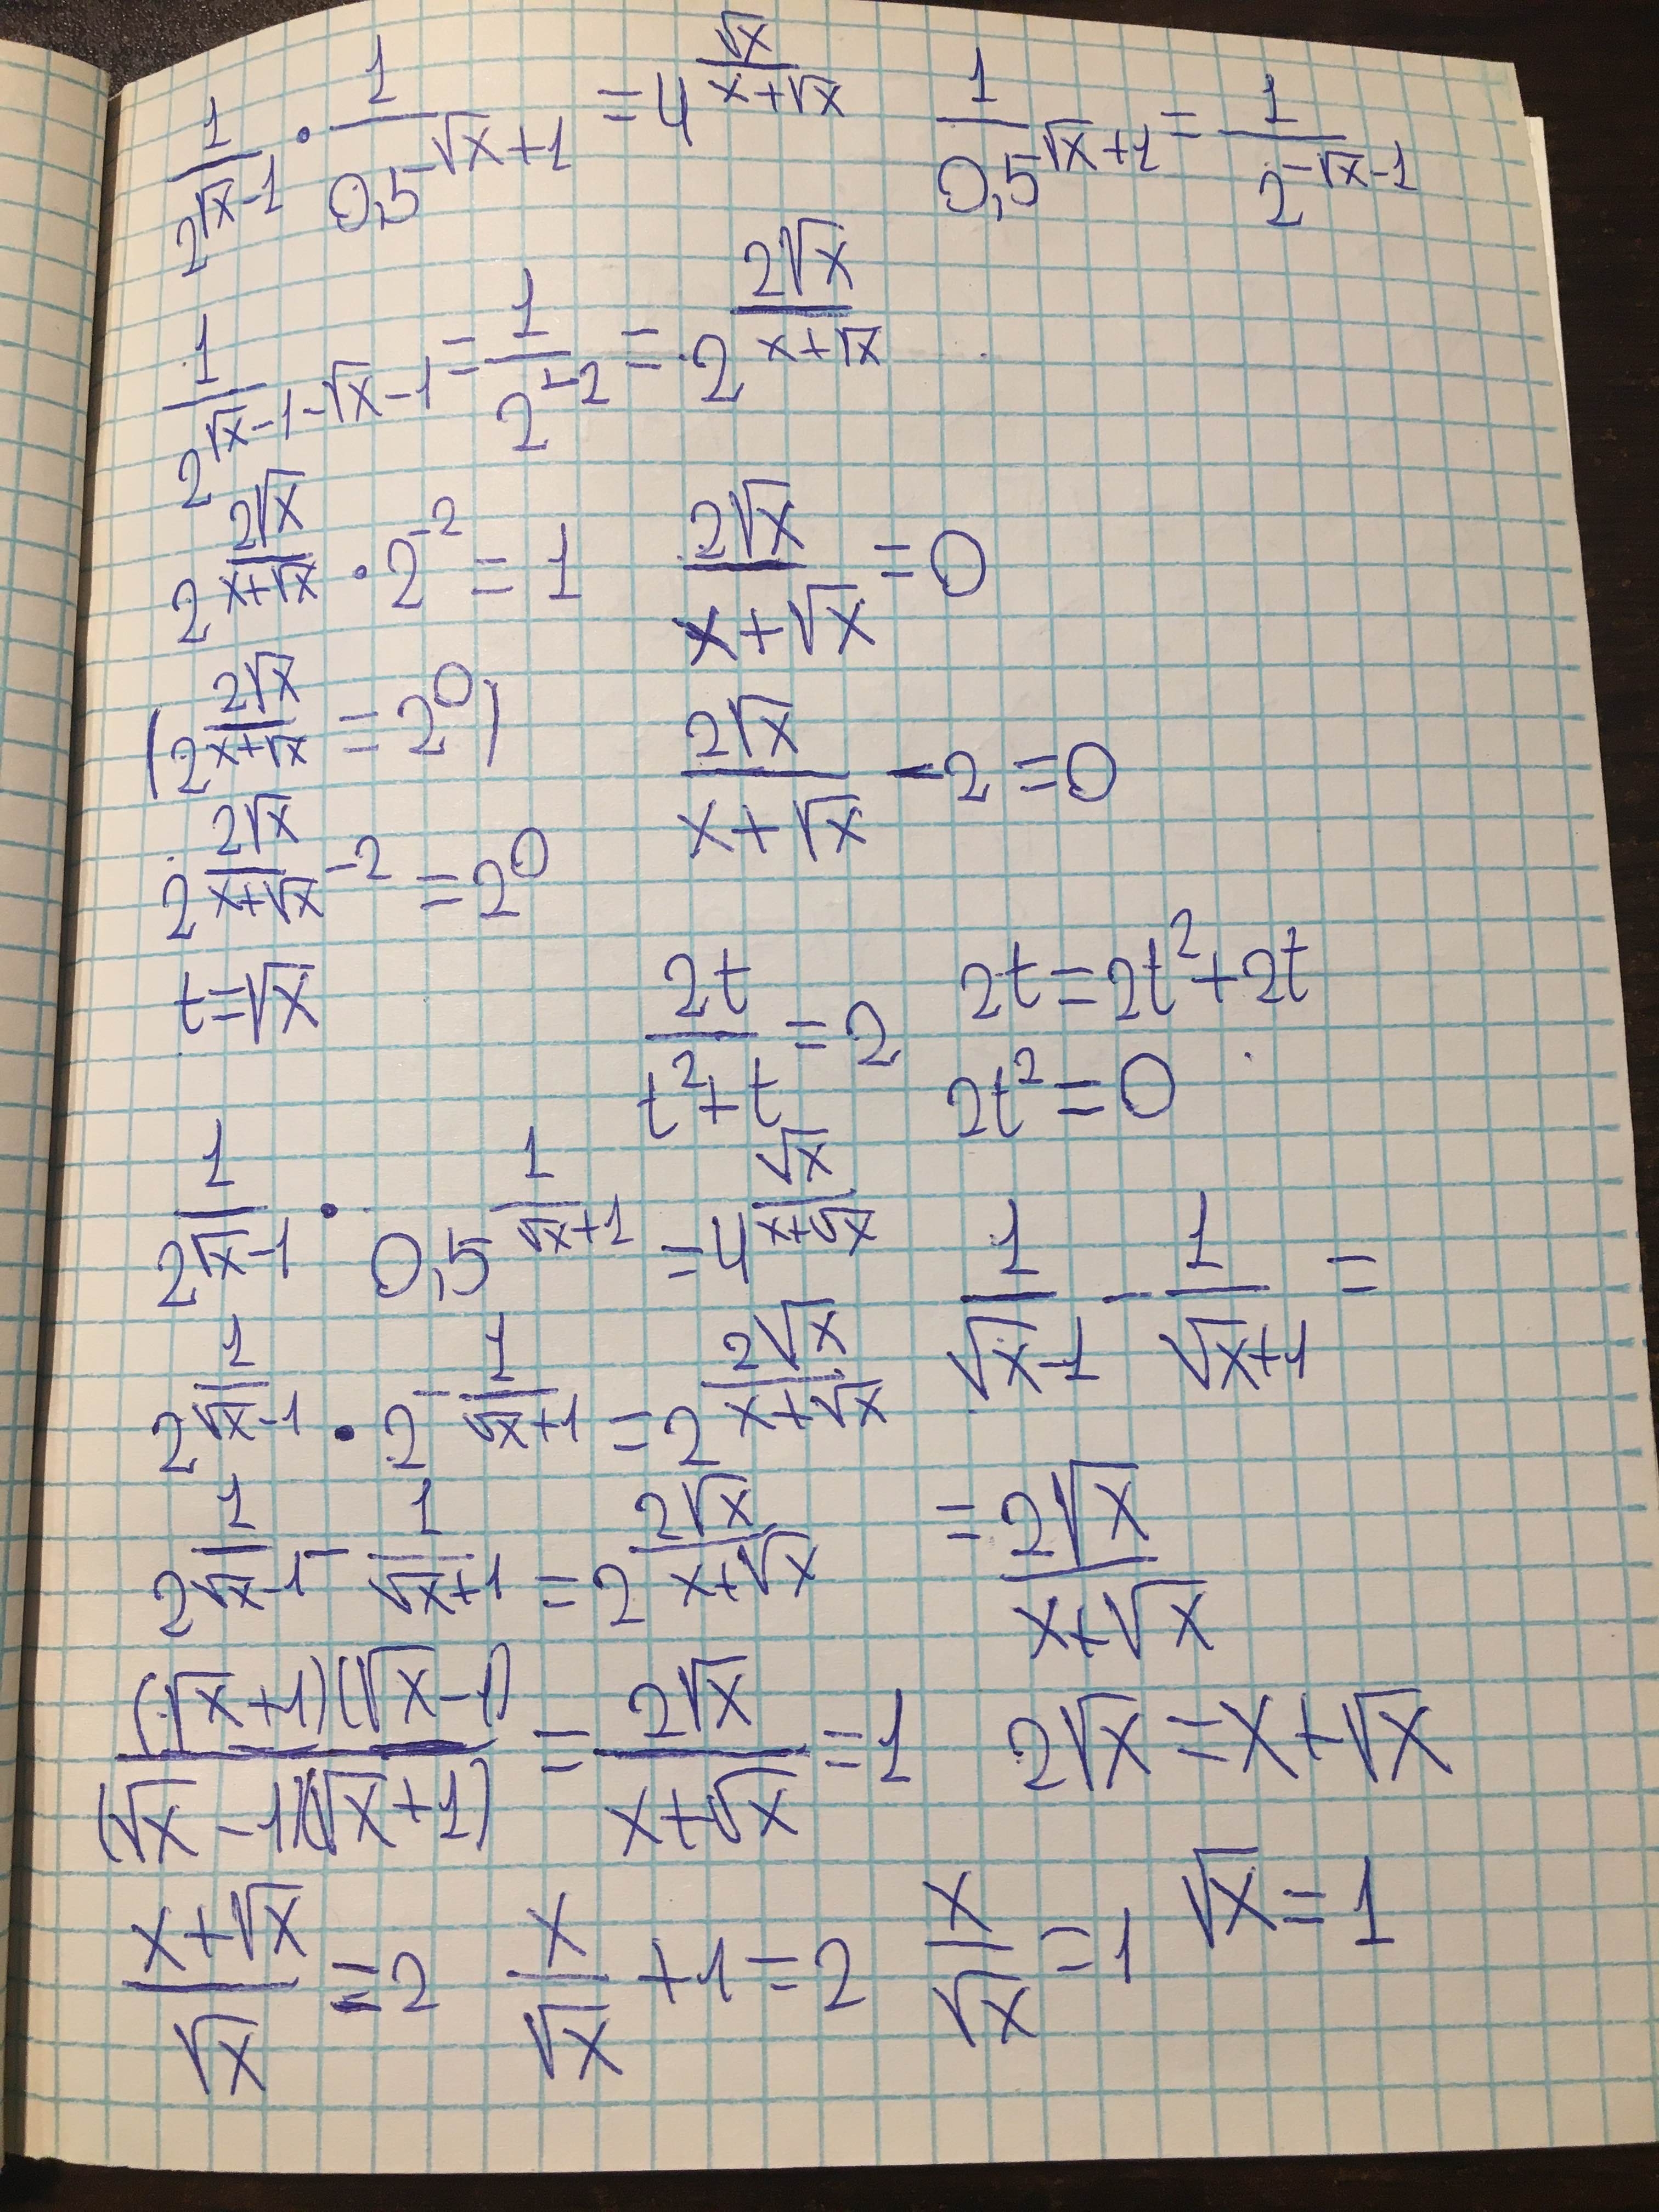 1/2^(√x-1) · 1/0,5^(√x+1) = 4^(√x/(x+√x))   1/0,5^(√x+1) = 1/2^(-√x-1)
1/2^(√x-1-√x-1) = 1/2^(-2) = 2^(2√x/(x+√x))
2^(2√x/(x+√x)) · 2^(-2) = 1   2√x/(x+√x) = 0
(2^(2√x/(x+√x)) = 2^0)   2√x/(x+√x) - 2 = 0
2^(2√x/(x+√x) - 2) = 2^0
t=√x   2t/(t²+t) = 2   2t=2t²+2t
2t²=0
1/2^(√x-1) · 0,5^(1/(√x+1)) = 4^(√x/(x+√x))   1/(√x-1) - 1/(√x+1) =
2^(1/(√x-1)) · 2^(-1/(√x+1)) = 2^(2√x/(x+√x))
2^(1/(√x-1) - 1/(√x+1)) = 2^(2√x/(x+√x))   = 2√x/(x+√x)
(√x+1)(√x-1)/(√x-1)(√x+1) = 2√x/(x+√x) = 1   2√x=x+√x
(x+√x)/√x = 2   x/√x + 1 = 2   x/√x = 1   √x = 1